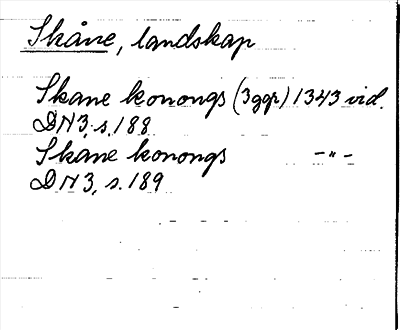 Skåne, landskap
Skane konongs (3ggr) 1343 vid.
DN 3, s. 188
Skane konongs -"-
DN 3, s. 189